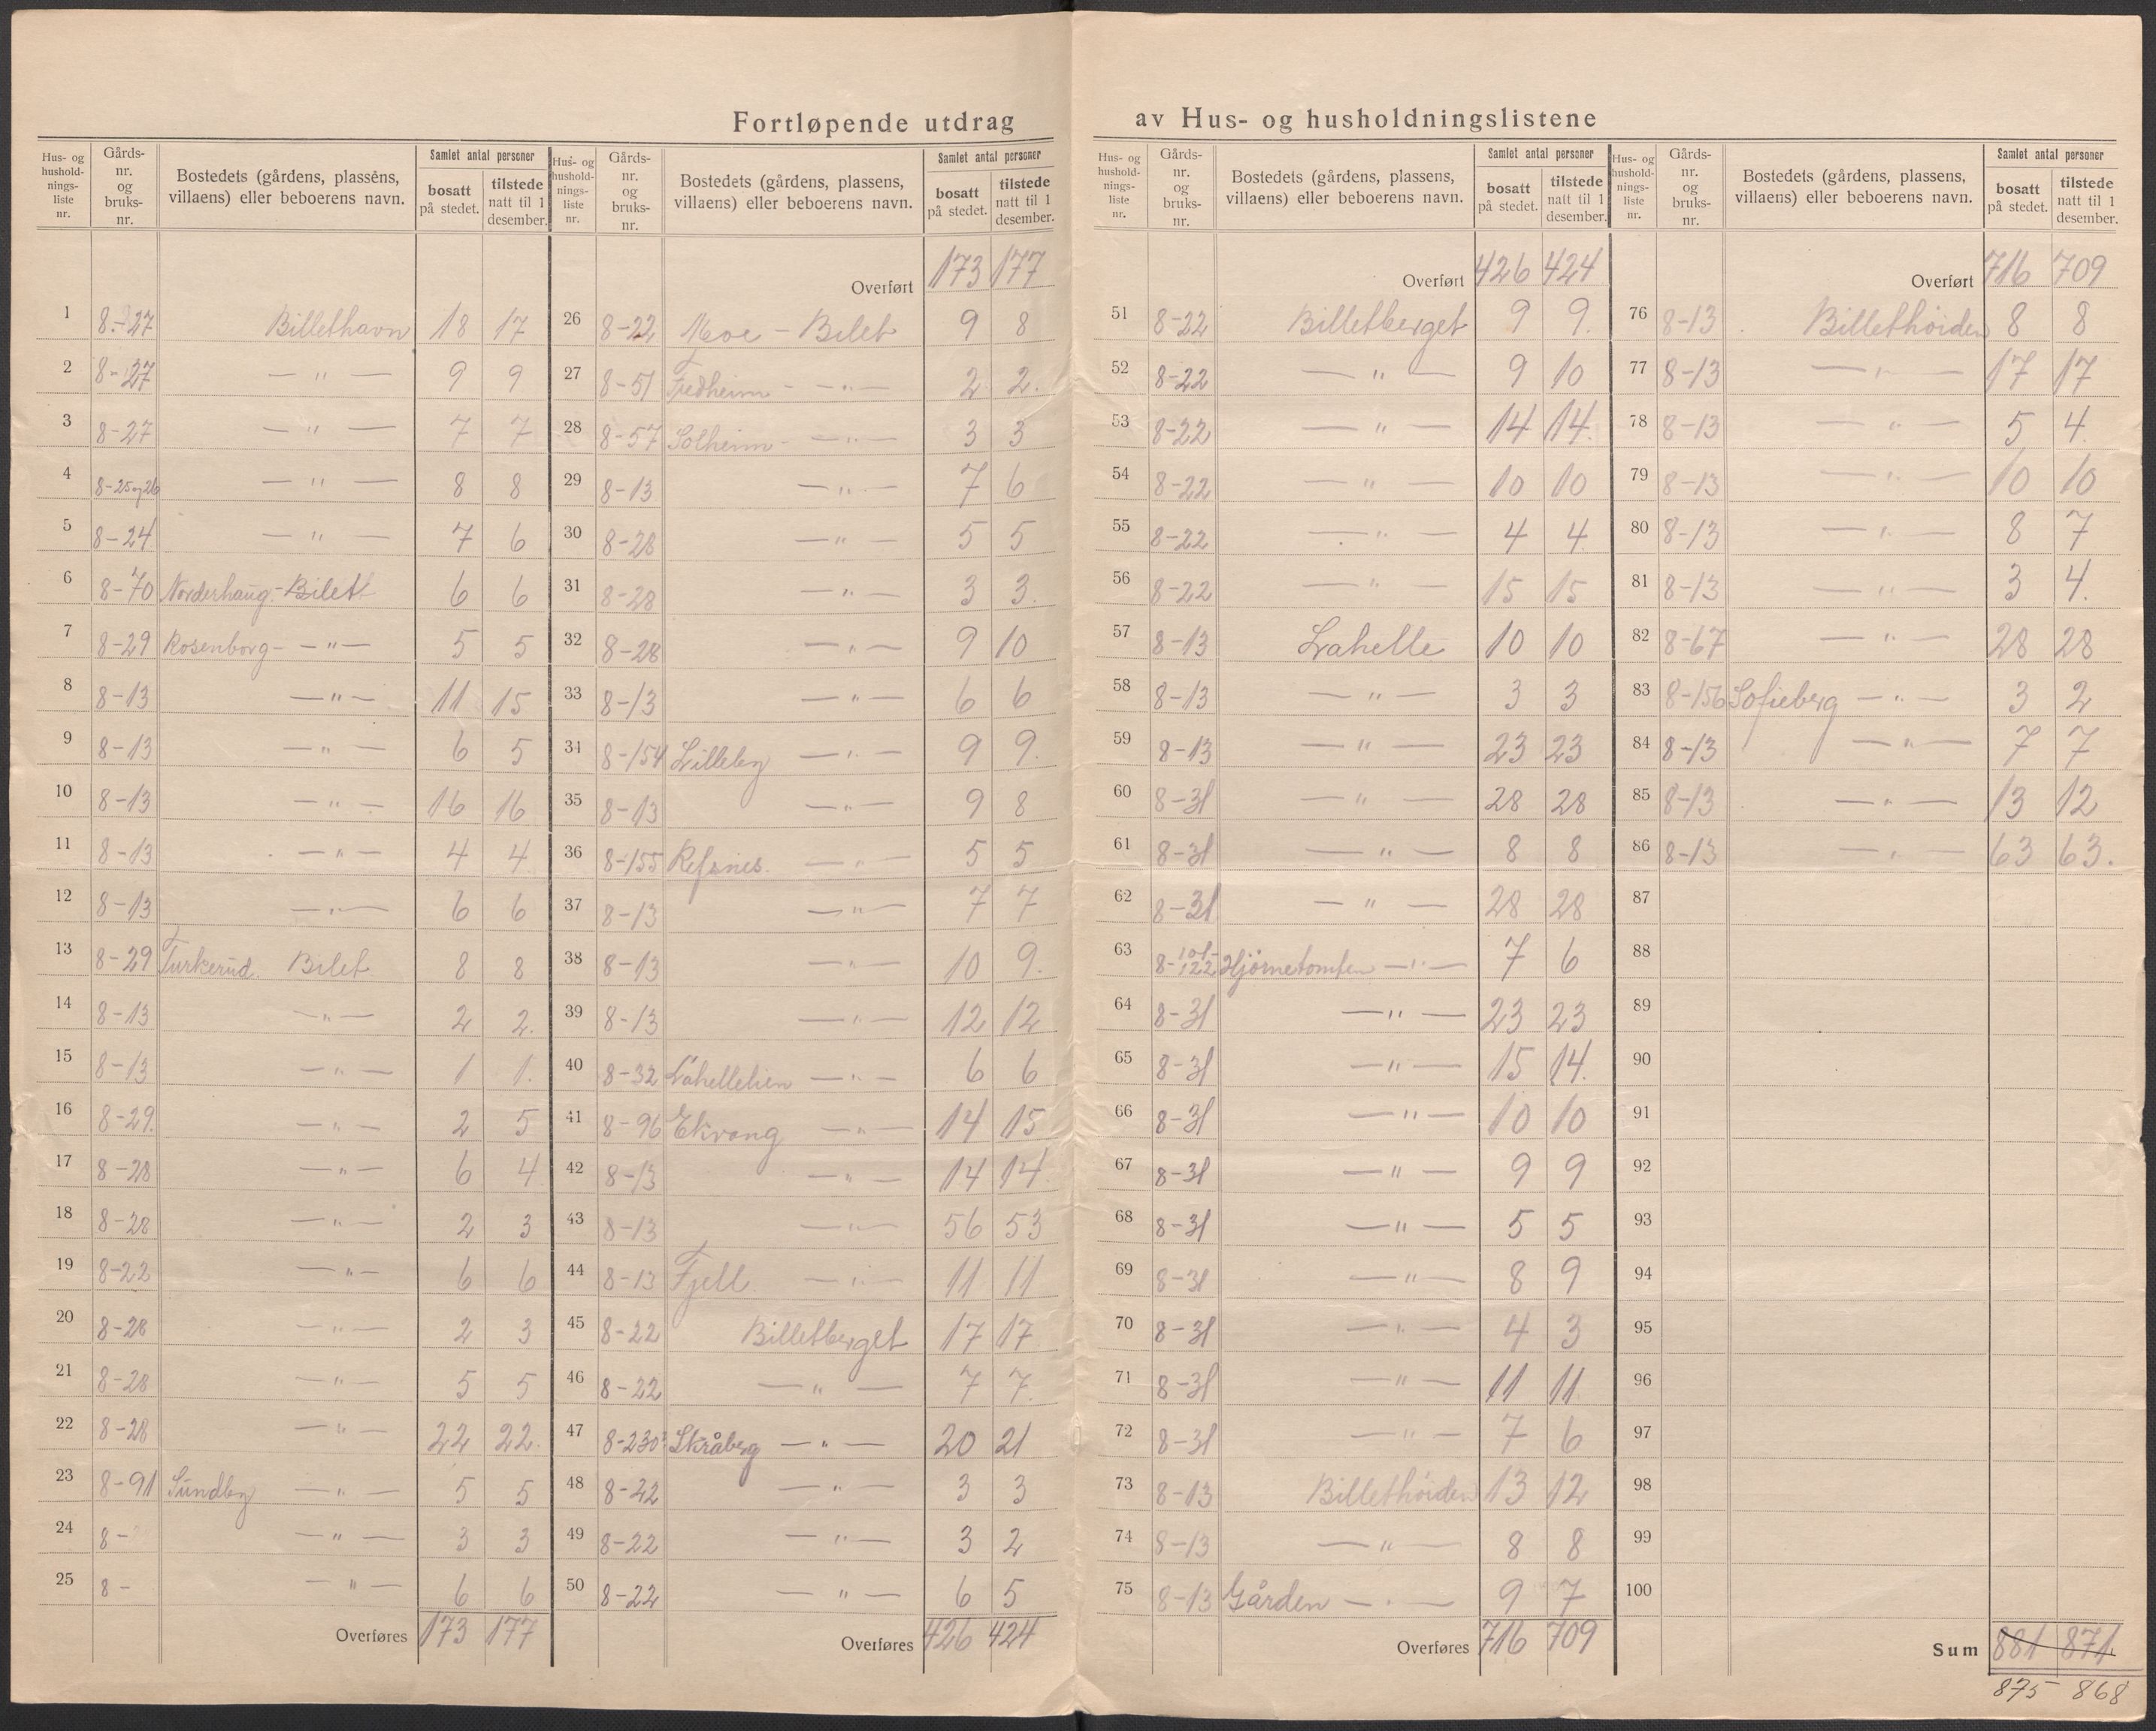 Fortløpende utdrag av Hus- og husholdningslistene
Hus- og hushold-nings-liste nr. Gårds-nr. og bruks-nr. Bostedets (gårdens, plassens, villaens) eller beboerens navn. Samlet antal personer bosatt på stedet. tilstede natt til 1 desember.
1 8-27 Billethavn 18 17
2 8-27 — " — 9 9
3 8-27 — " — 7 7
4 8-25 og 26 — " — 8 8
5 8-24 — " — 7 6
6 8-70 Norderhaug.- Bilet 6 6
7 8-29 Rosenborg - — " — 5 5
8 8-13 — " — 11 15
9 8-13 — " — 6 5
10 8-13 — " — 16 16
11 8-13 — " — 4 4
12 8-13 — " — 6 6
13 8-29 Turkerud. Bilet 8 8
14 8-13 — " — 2 2.
15 8-13 — " — 1 1.
16 8-29. — " — 2 5
17 8-28 — " — 6 4
18 8-28 — " — 2 3
19 8-22 — " — 6 6
20 8-28 — " — 2 3
21 8-28 — " — 5 5
22 8-28 — " — 22 22.
23 8-91 Sundby — " — 5 5
24 8- — " — 3 3
25 8- — " — 6 6
Overføres 173 177
Hus- og hushold-nings-liste nr. Gårds-nr. og bruks-nr. Bostedets (gårdens, plassens, villaens) eller beboerens navn. Samlet antal personer bosatt på stedet. tilstede natt til 1 desember.
Overført 173 177
26 8-22 Moe - Bilet 9 8
27 8-51 Fredheim - — " — 2 2.
28 8-57 Solheim - — " — 3 3
29 8-13 — " — 7 6
30 8-28 — " — 5 5
31 8-28 — " — 3 3.
32 8-28 — " — 9 10
33 8-13 — " — 6 6
34 8-154 Lilleby — " — 9 9.
35 8-13 — " — 9 8
36 8-155 Refsnes. — " — 5 5
37 8-13 — " — 7 7
38 8-13 — " — 10 9.
39 8-13 — " — 12 12
40 8-32 Lahellelien — " — 6 6
41 8-96 Ekvang — " — 14 15
42 8-13 — " — 14 14
43 8-13 — " — 56 53
44 8-13 Fjell. — " — 11 11
45 8-22 Billetberget 17 17
46 8-22 — " — 7 7.
47 8-230 Skråberg — " — 20 21
48 8-22 — " — 3 3
49 8-22 — " — 3 2
50 8-22 — " — 6 5
Overføres 426 424
Hus- og hushold-nings-liste nr. Gårds-nr. og bruks-nr. Bostedets (gårdens, plassens, villaens) eller beboerens navn. Samlet antal personer bosatt på stedet. tilstede natt til 1 desember.
Overført 426 424
51 8-22 Billetberget 9 9.
52 8-22 — " — 9 10
53 8-22 — " — 14 14.
54 8-22 — " — 10 10
55 8-22 — " — 4 4.
56 8-22 — " — 15 15
57 8-13 Lahelle 10 10
58 8-13 — " — 3 3
59 8-13 — " — 23 23
60 8-31 — " — 28 28
61 8-31 — " — 8 8
62 8-31 — " — 28 28
63 8-101-122 Hjørnetomten — " — 7 6
64 8-31 — " — 23 23
65 8-31 — " — 15 14.
66 8-31 — " — 10 10
67 8-31 — " — 9 9
68 8-31 — " — 5 5
69 8-31 — " — 8 9
70 8-31 — " — 4 3
71 8-31 — " — 11 11
72 8-31 — " — 7 6
73 8-13 Billethöiden 13 12
74 8-13 — " — 8 8
75 8-13 Gården — " — 9 7
Overføres 716 709
Hus- og hushold-nings-liste nr. Gårds-nr. og bruks-nr. Bostedets (gårdens, plassens, villaens) eller beboerens navn. Samlet antal personer bosatt på stedet. tilstede natt til 1 desember.
Overført 716 709
76 8-13 Billethöiden 8 8
77 8-13 — " — 17 17
78 8-13 — " — 5 4.
79 8-13 — " — 10 10
80 8-13 — " — 8 7
81 8-13 — " — 3 4.
82 8-67 — " — 28 28
83 8-156 Sofieberg — " — 3 2
84 8-13 — " — 7 7
85 8-13 — " — 13 12
86 8-13 — " — 63 63.
87
88
89
90
91
92
93
94
95
96
97
98
99
100
Sum 881 871
875 868